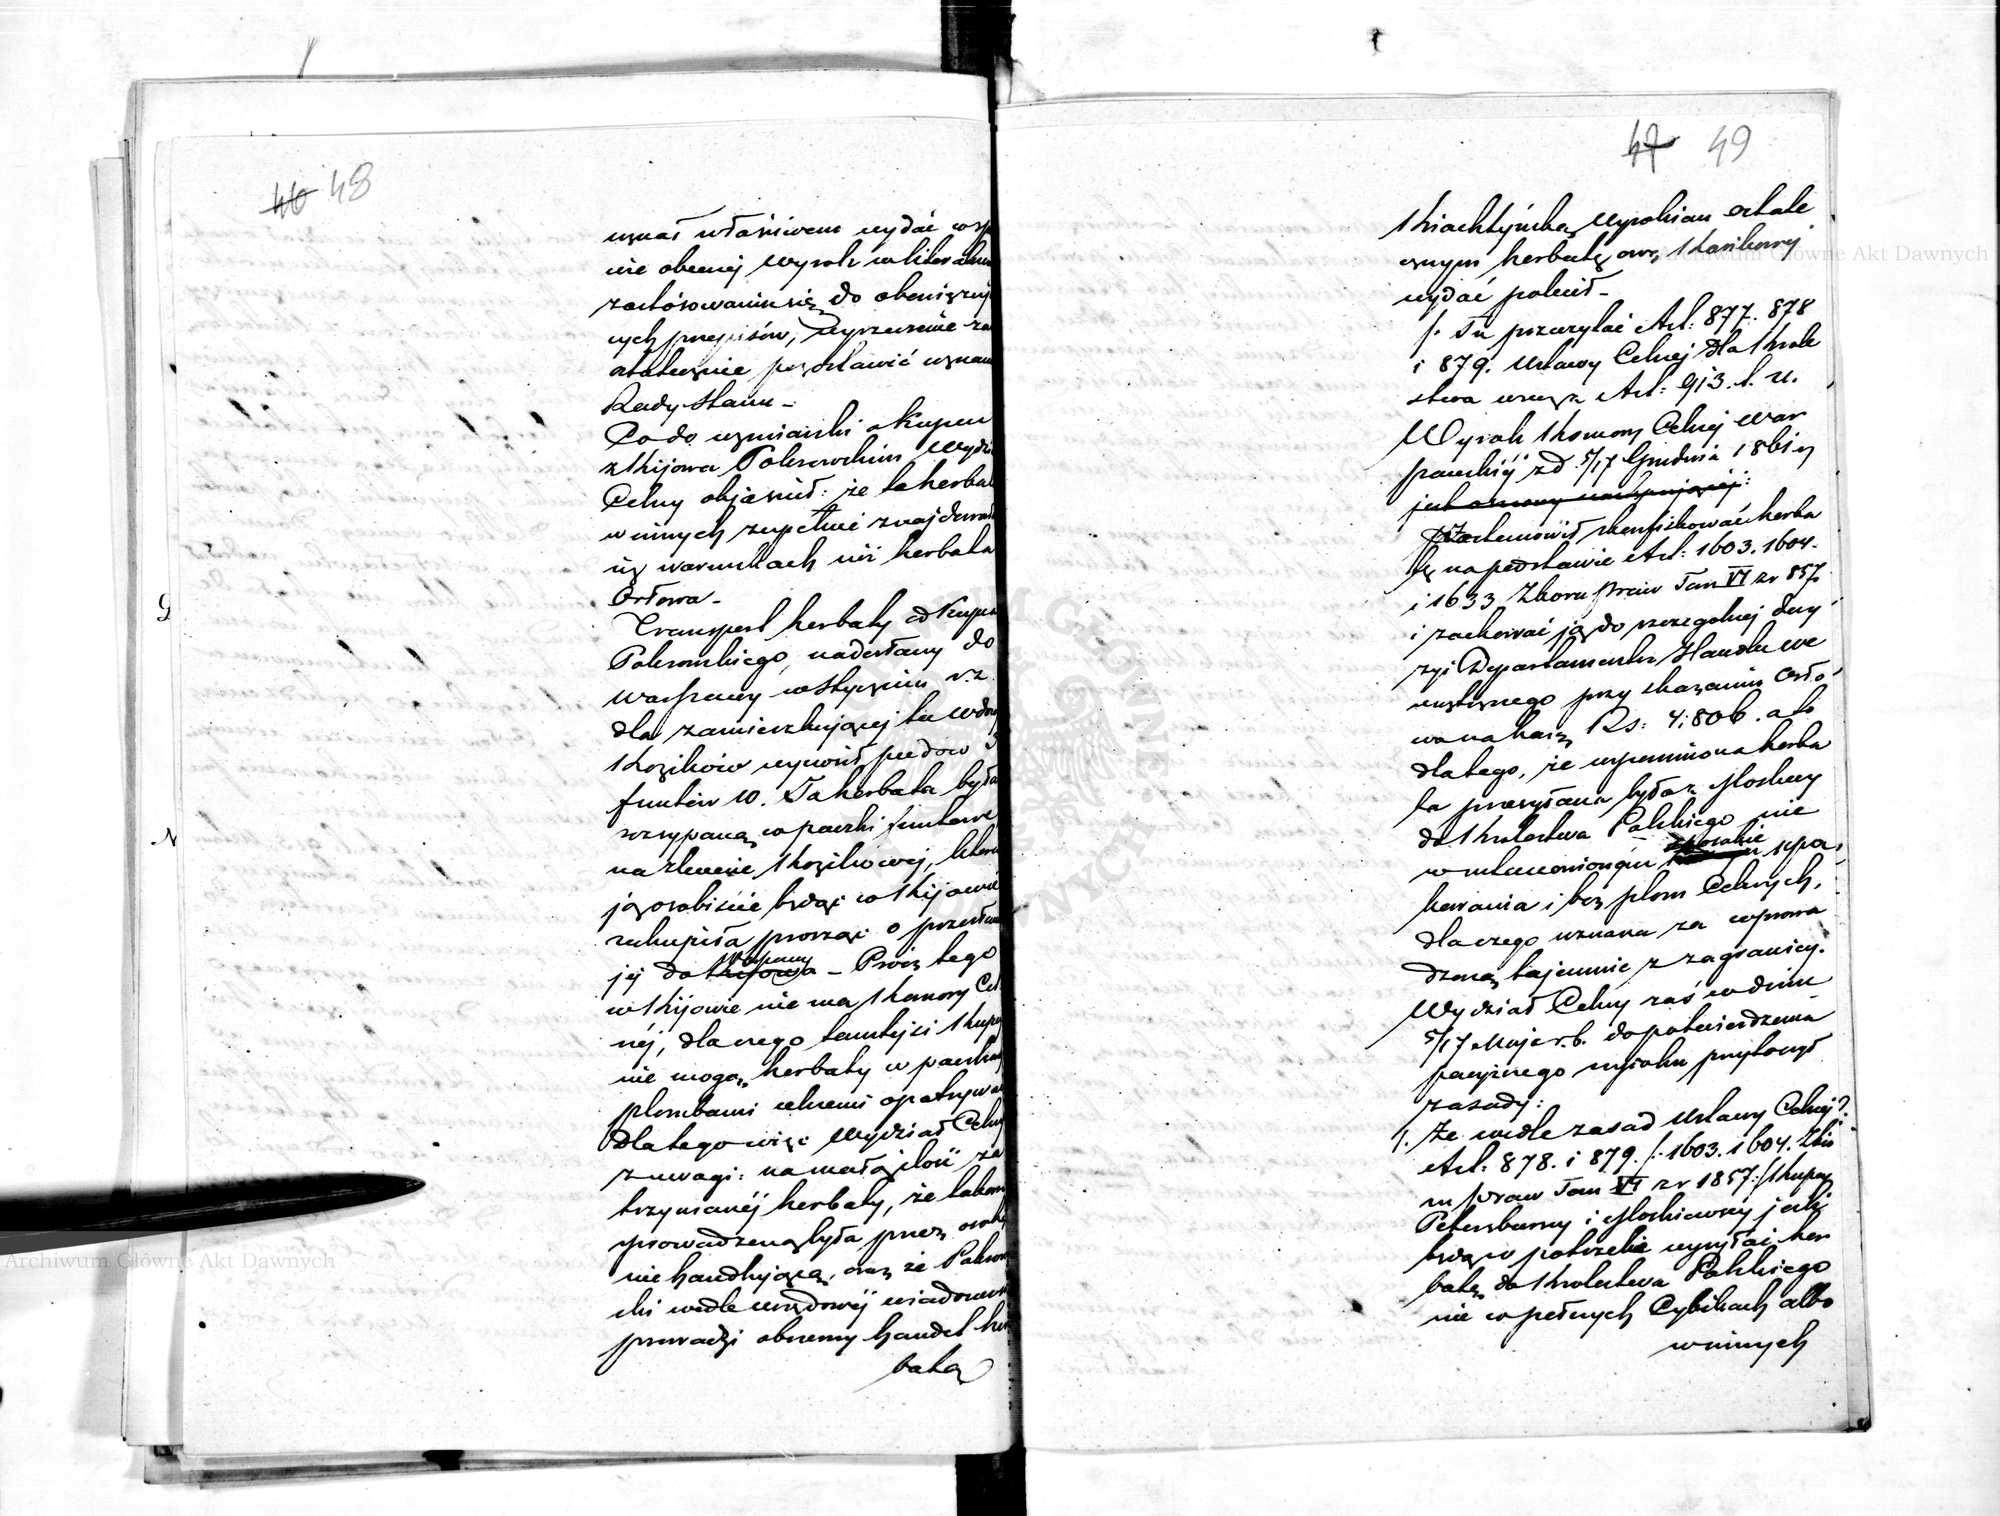 46 48
uznał właściwem wydać w sp
wie obecnej wyrok w literalnem
zastosowaniu się do obowiązuj
cych przepisów, wyrzeczenie za
ostatecznie pozostawić uznaniu
Rady Stanu –
Co do wzmianki o Kupcu
z Kijowa Pokrowskim Wydzi
Celny objaśnił: że ta herbat
w innych zupełnie znajdowała
się warunkach niż herbata
Orłowa –
Transport herbaty od Kupca
Pokrowskiego, nadesłany do
Warszawy w Styczniu r.z.
dla zamieszkującej tu wdowy
Kozików wynosił pudów 3
funtów 10. Ta herbata była
rozsypaną w paczki funtowe,
na zlecenie Kozikowej, która
ją osobiście będąc w Kijowie
zakupiła prosząc o przesłanie
jej do Kijowa Warszawy – Prócz tego
w Kijowie nie ma Komory Cel
néj, dla czego tamtejsi Kupcy
nie mogą herbaty w paczkach
plombami celnemi opatrywać
Dla tego więc Wydział Celny
z uwagi: na małą ilość za
trzymanéj herbaty, że takowa
sprowadzoną była przez osobę
nie handlującą, oraz że Pokrow
ski wedle urzędowéj wiadomości
prowadzi obszerny handel her
batą
47 49
Kiachtyńską Wyrokiem ostate
cznym herbatę ową Kozikowej
wydać polecił –
/. Tu przeczytać Art: 877. 878
i 879. Ustawy Celnej dla Króle
stwa oraz Art: 913. t. u.
Wyrok Komory Celnej War
szawskiéj z d 5/17 Grudnia 1861 r
jest osnowy następującej:
Postanowił skonfiskować herba
tę na podstawie Art: 1603. 1604.
i 1633 Zboru praw Tom VI z r 857
i zachować ją do szczególnej decy
zyi Departamentu Handlu we
wnętrznego przy skazaniu Orło
wa na karę Rs: 4,806. a to
dlatego, że wspomniona herba
ta przesyłana była z Moskwy
do Królestwa Polskiego nie
w ustanowionym sposobie upa
kowania i bez plomb Celnych,
dla czego uznana za wprowa
dzoną tajemnie z zagranicy.
Wydział Celny zaś w dniu
5/17 Maja r.b. do potwierdzenia
powyższego wyroku przytoczył
zasady:
1. Że wedle zasad Ustawy Celnej
Art: 878. i 879. /: 1603. 1604. Zbio
ru praw Tom VI z r 1857:/ Kupcy
Petersburscy i Moskiewscy jeśli
będą w potrzebie wysyłać her
batę do Królestwa Polskiego
nie w pełnych Cybikach albo
w innych